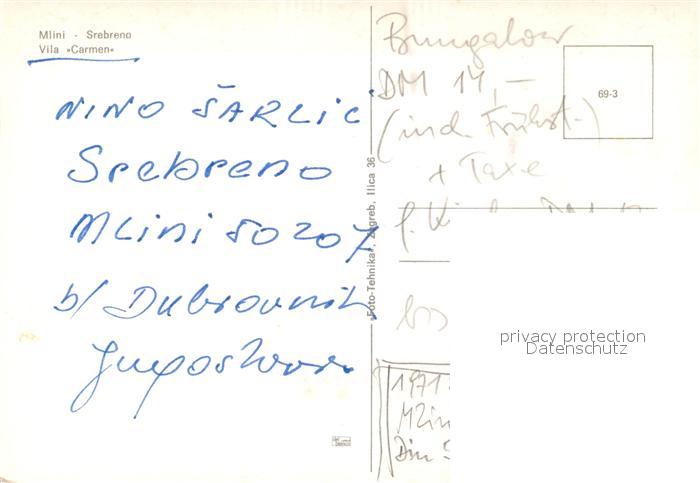 Mlini - Srebreno
Vila »Carmen«
NINO ŠARLIĆ
Srebreno
MLINI 50207
b/ Dubrovnik
Jugoslavia
»Foto-Tehnika«, Zagreb, Ilica 36
Bungalow
DM 14,—
(incl. Frühst.)
+ Taxe
69-3
f.
bis
1971
Mlin
Din
privacy protection
Datenschutz